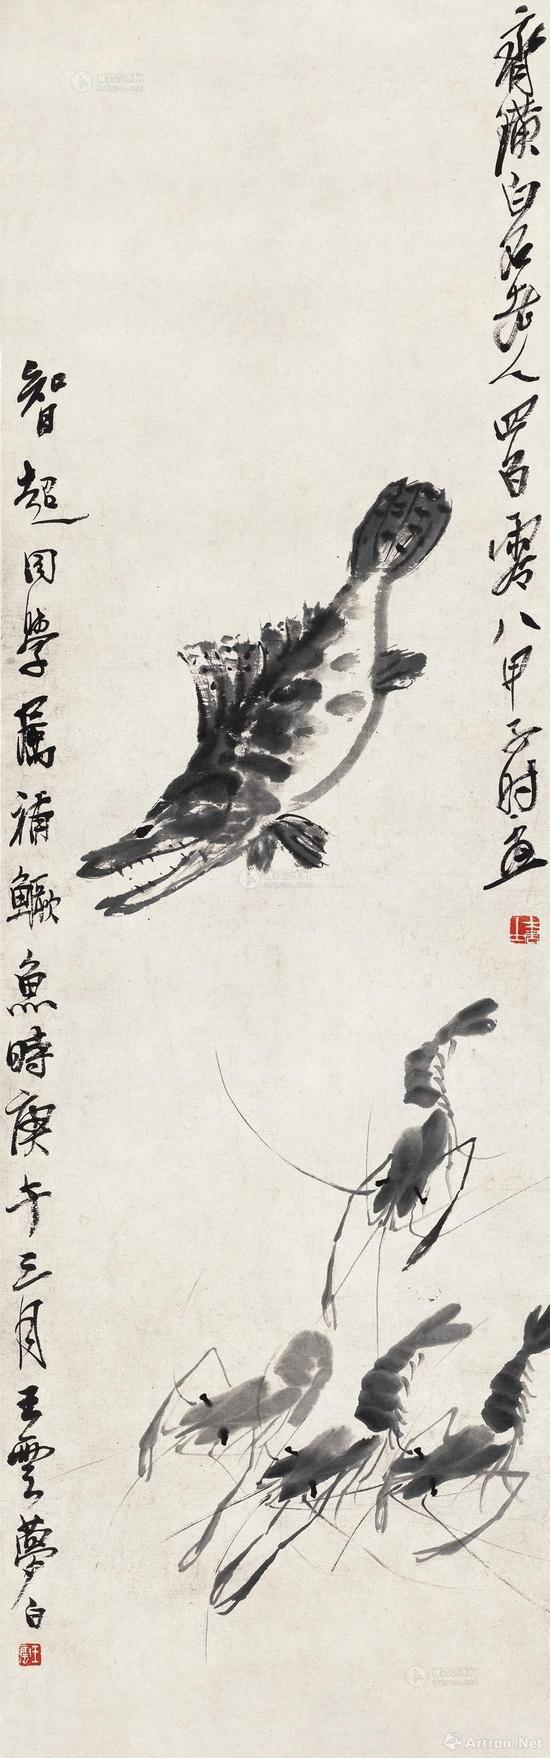 齊璜白石老人四百零八甲子时画
智超同學屬補鱖魚時庚午三月王雲夢白
Artron.Net